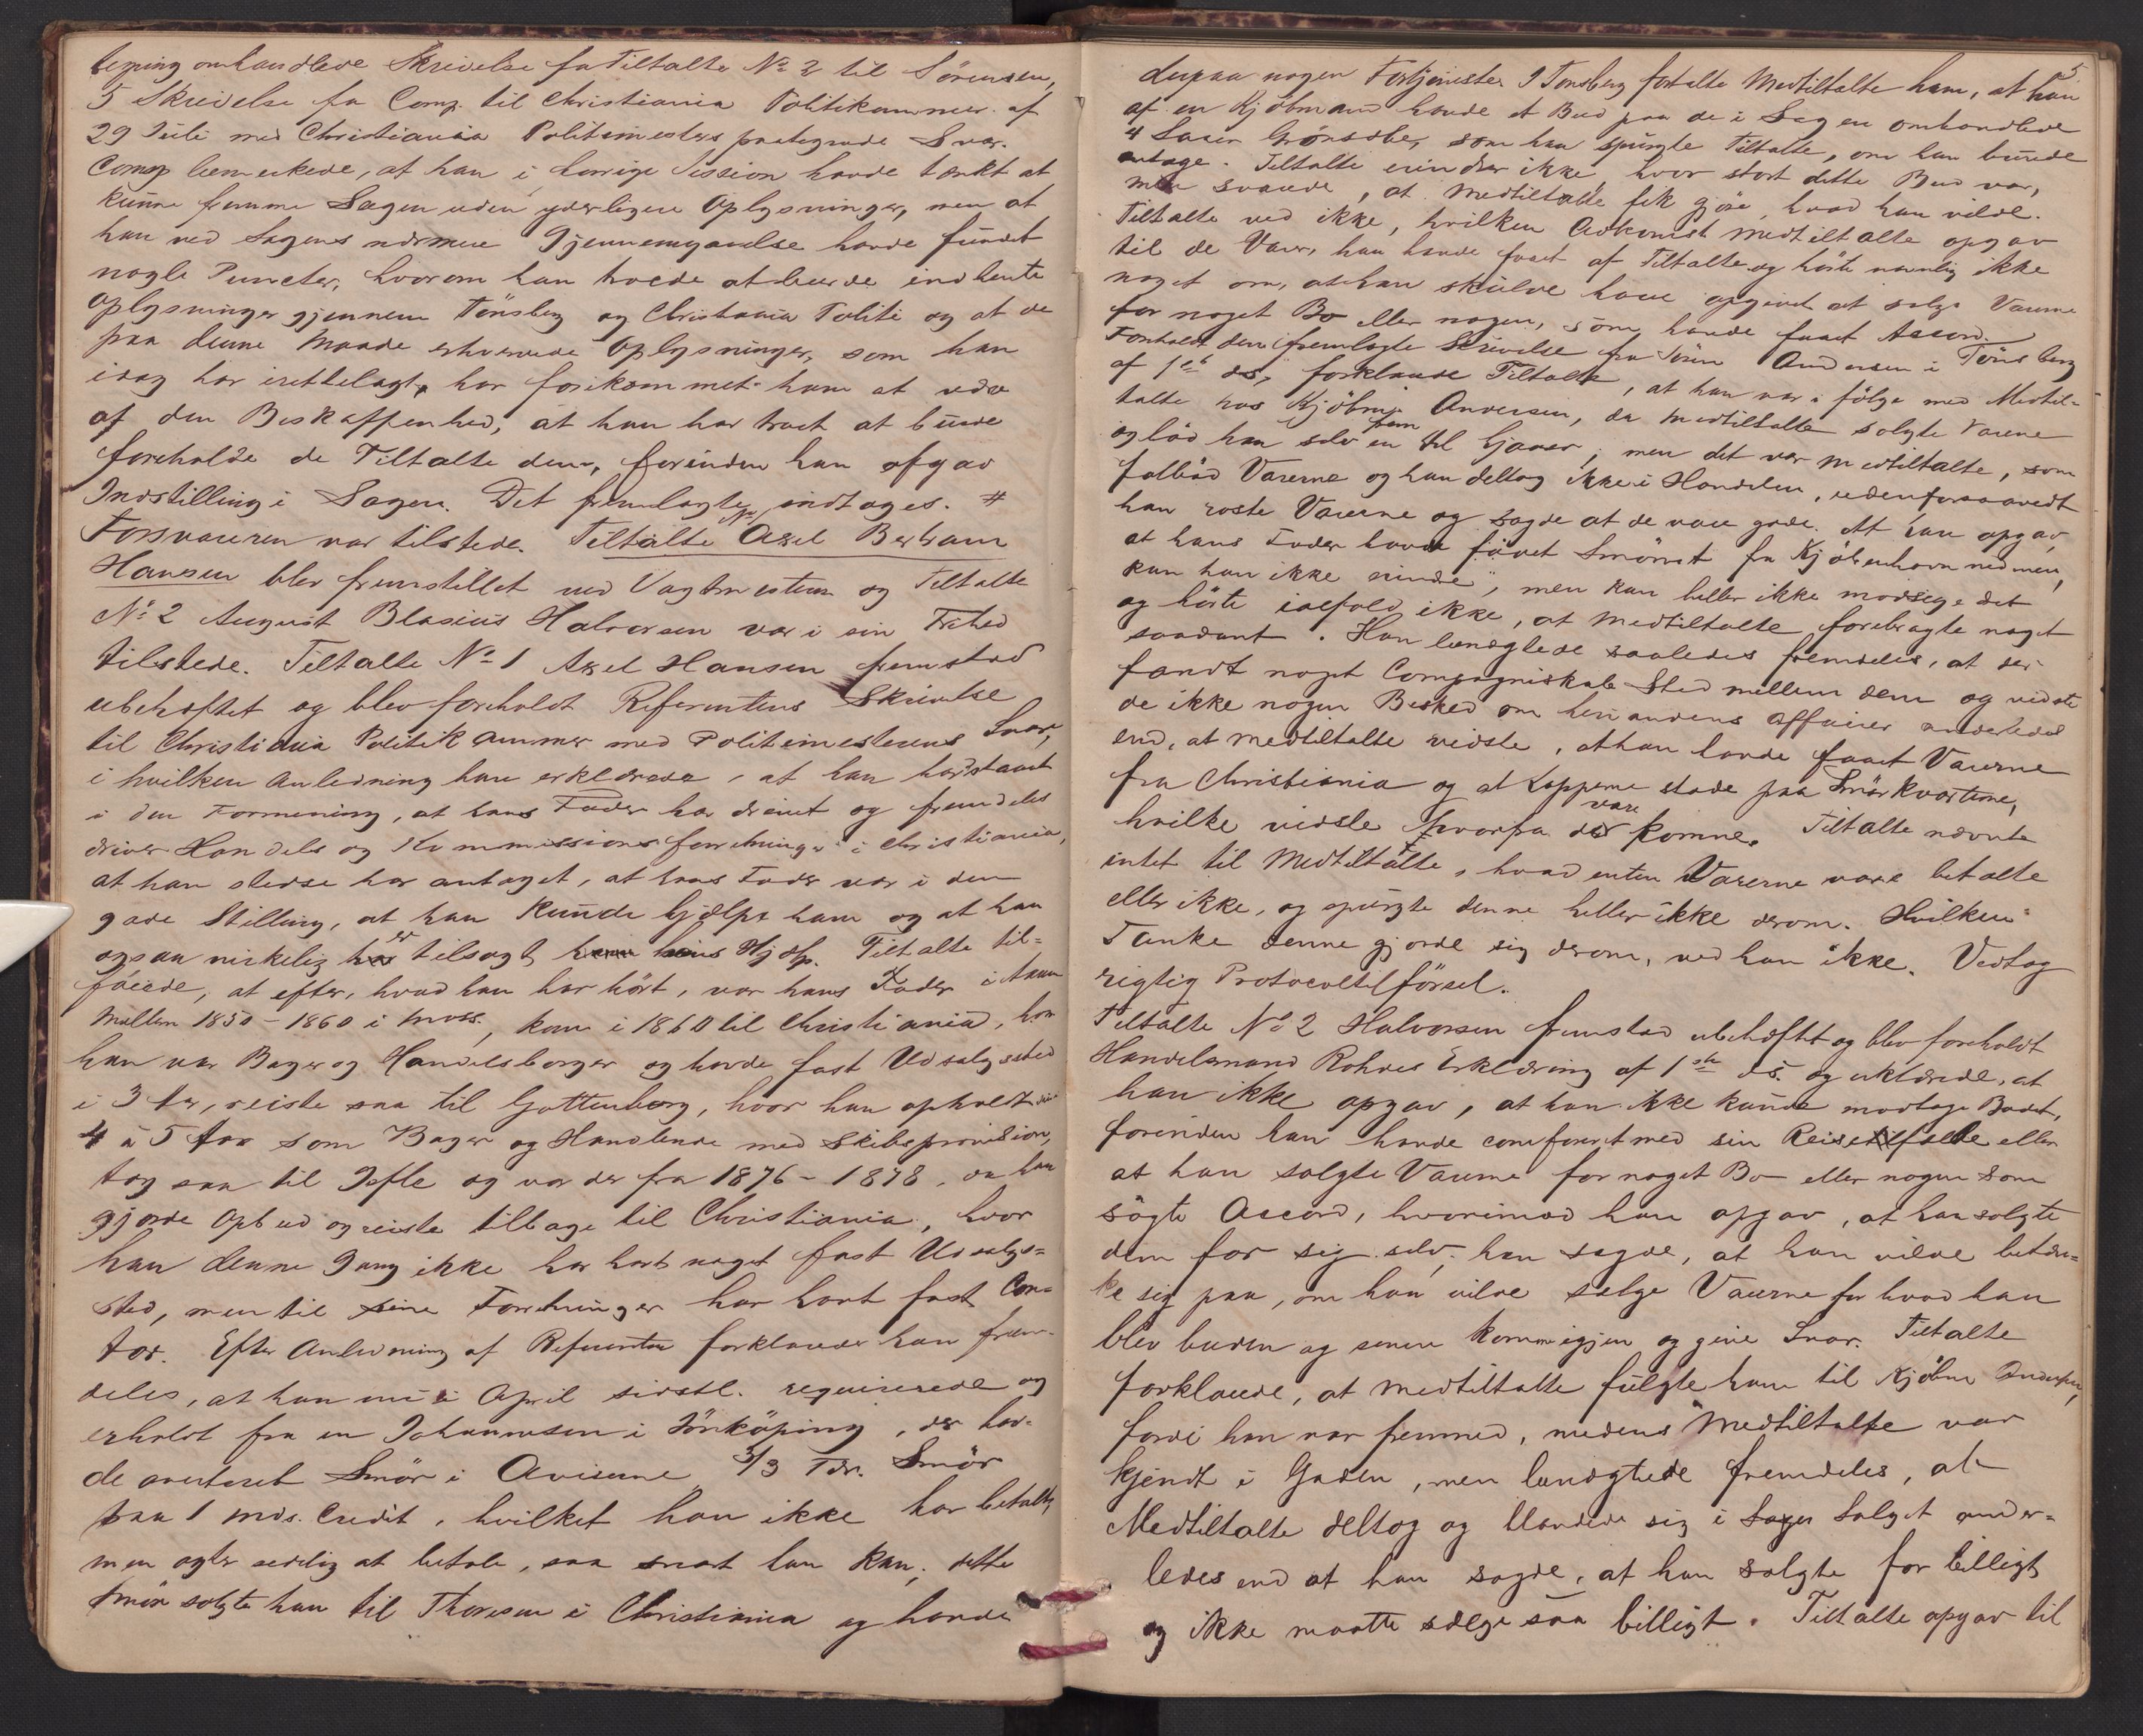 omhandlede Skrivelse fra Tiltalte No 2 til Sörensen,
5 Skrivelse fra Comp. til Christiania Politikammer af
29 Juli med Christiania Politimesters paategnede Svar.
Comp bemerkede, at han i forrige Session havde tænkt at
kunne fremme Sagen uden yderligere Oplysninger, men at
han ved Sagens nærmere Gjennemgaaelse havde fundet
nogle Puncter, hvorom han troede at burde indhente
Oplysninger gjennem Tönsberg og Christiania Politi og at de
paa denne Maade erhvervede Oplysninger, som han
idag har irettelagt, har forekommet ham at være
af den Beskaffenhed, at han har troet at burde
foreholde de Tiltalte dem, forinden han afgav
Indstilling i Sagen. Det fremlagte indtages. #
Forsvareren var tilstede. Tiltalte No 1 Axel Bertram
Hansen blev fremstillet ved Vagtmesteren og Tiltalte
No 2 August Blasius Halvorsen var i sin Frihed
tilstede. Tiltalte No 1 Axel Hansen fremstod
ubehæftet og blev foreholdt Referentens Skrivelse
til Christiania Politikammer med Politimesterens Svar,
i hvilken Anledning han erklærede, at han har staaet
i den Formening, at hans Fader har drevet og fremdeles
driver Handels og Kommissionsforretninger i Christiania,
at han stedse har antaget, at hans Fader var i den
gode Stilling, at han kunde hjælpe ham og at han
ogsaa virkelig er tilsagt hans Hjælp. Tiltalte til=
föiede, at efter, hvad han har hört, var hans Fader i Aarene
mellem 1850-1860 i Moss, kom i 1860 til Christiania, hvor
han var Bager og Handelsborger og havde fast Udsalgssted
i 3 Aar, reiste saa til Gottenborg, hvor han opholdt sig
4 à 5 Aar som Bager og Handlende med Skibsprovision,
tog saa til Gefle og var der fra 1876-1878, da han
gjorde Opbud og reiste tilbage til Christiania, hvor
han denne Gang ikke har havt noget fast Udsalgs=
sted, men til sine Forretninger har havt fast Con=
tor. Efter Anledning af Referenten forklarede han frem=
deles, at han nu i April sidstl. requirerede og
erholdt fra en Johannesen i Jönköping, der hav=
de averteret Smör i Aviserne, 3/3 Tdr. Smör
paa 1 Mds. Credit, hvilket han ikke har betalt,
men agter redelig at betale, saa snart han kan; dette
Smör solgte han til Thoresen i Christiania og havde
5
derpaa nogen Fortjeneste. I Tonsberg fortalte Medtiltalte ham, at han
af en Kjöbmand havde et Bud paa de i Sagen omhandlede
4 Saer Grönsæbe, som han spurgte Tiltalte, om han burde
antage. Tiltalte erindrer ikke, hvor stort dette Bud var,
men svarede, at Medtiltalte fik gjöre, hvad han vilde.
Tiltalte ved ikke, hvilken Adkomst Medtiltalte opgav
til de Varer, han havde faaet af Tiltalte og hörte navnlig ikke
noget om, at han skulde have opgivet at sælge Varerne
for noget Bo eller nogen, som havde faaet Accord.
Foreholdt den fremlagte Skrivelse fra Sören Andersen i Tönsberg
af 1ste ds, forklarede Tiltalte, at han var i fölge med Medtil=
talte hos Kjöbm. Andersen, da Medtiltalte solgte Varerne
og löd han selv frem en til Gaver; men det var Medtiltalte, som
falböd Varerne og han deltog ikke i Handelen, udenforsaavidt
han roste Varerne og sagde at de vare gode. At han opgav,
at hans Fader havde faaet Smörret fra Kjöbenhavn
kan han ikke erindre, men kan heller ikke modsige det
og hörte ialfald ikke, at Medtiltalte forebragte noget
saadant. Han benægtede saaledes fremdeles, at der
fandt noget Compagniskab Sted mellem dem og vidste
de ikke nogen Besked om hinandens Affairer anderledes
end, at Medtiltalte vidste, at han havde faaet Varerne
fra Christiania og at Lapperne stode paa Smörkvarterne,
hvilke vidste hvorfra de vare komne. Tiltalte nævnte
intet til Medtiltalte, hvad enten Varerne vare betalte
eller ikke, og spurgte denne heller ikke derom. Hvilken
Tanke denne gjorde sig derom, ved han ikke. Vedtog
rigtig Protocoltilförsel.
Tiltalte No 2 Halvorsen fremstod ubehæftet og blev foreholdt
Handelsmand Rohdes Erklæring af 1ste ds. og erklærede, at
han ikke opgav, at han ikke kunde modtage Budet,
forinden han havde confereret med sin Reisefælle eller
at han solgte Varerne for noget Bo eller nogen som
sögte Accord, hvorimod han opgav, at han solgte
dem for sig selv; han sagde, at han vilde betæn=
ke sig paa, om han vilde sælge Varerne for hvad han
blev buden og senere komme igjen og give Svar. Tiltalte
forklarede, at Medtiltalte fulgte ham til Kjöbm. Andersen,
fordi han var fremmed, medens Medtiltalte var
kjendt i Gaden, men benægtede fremdeles, at
Medtiltalte deltog og blandede sig i Salget ander=
ledes end at han sagde, at han solgte for billigt
og ikke maatte sælge saa billigt. Tiltalte opgav til